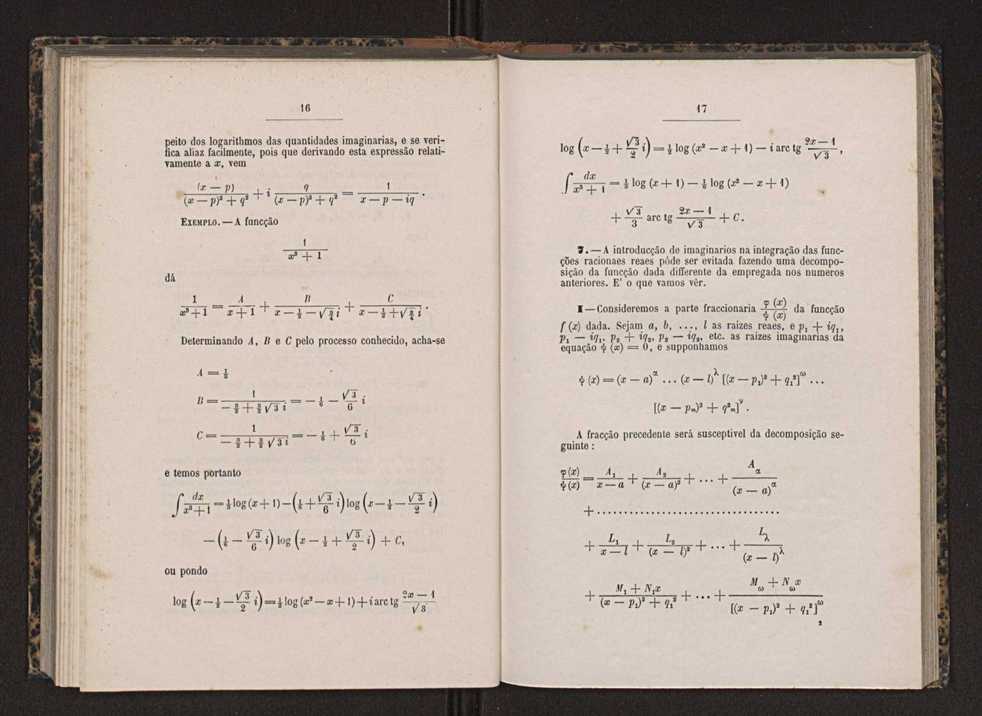 16
peito dos logarithmos das quantidades imaginarias, e se veri-
fica aliaz facilmente, pois que derivando esta expressão relati-
vamente a x, vem
(x — p) / ((x — p)² + q²) + i q / ((x — p)² + q²) = 1 / (x — p — iq) .
EXEMPLO. — A funcção
1 / (x³ + 1)
dá
1 / (x³ + 1) = A / (x + 1) + B / (x — ½ — √¾ i) + C / (x — ½ + √¾ i) .
Determinando A, B e C pelo processo conhecido, acha-se
A = ⅓
B = 1 / (— 3/2 + 3/2 √3 i) = — ⅙ — √3/6 i
C = 1 / (— 3/2 + 3/2 √3 i) = — ⅙ + √3/6 i
e temos portanto
∫ dx / (x³ + 1) = ⅓ log (x + 1) — (⅙ + √3/6 i) log (x — ½ — √3/2 i)
— (⅙ — √3/6 i) log (x — ½ + √3/2 i) + C,
ou pondo
log (x — ½ — √3/2 i) = ½ log (x² — x + 1) + i arc tg (2x — 1)/√3
17
log (x — ½ + √3/2 i) = ½ log (x² — x + 1) — i arc tg (2x — 1)/√3 ,
∫ dx / (x³ + 1) = ⅓ log (x + 1) — ⅙ log (x² — x + 1)
+ √3/3 arc tg (2x — 1)/√3 + C.
7. — A introducção de imaginarios na integração das func-
ções racionaes reaes póde ser evitada fazendo uma decompo-
sição da funcção dada differente da empregada nos numeros
anteriores. E' o que vamos vêr.
I — Consideremos a parte fraccionaria φ (x) / ψ (x) da funcção
f (x) dada. Sejam a, b, ..., l as raizes reaes, e p₁ + iq₁,
p₁ — iq₁, p₂ + iq₂, p₂ — iq₂, etc. as raizes imaginarias da
equação ψ (x) = 0, e supponhamos
ψ (x) = (x — a)^α ... (x — l)^λ [(x — p₁)² + q₁²]^ω ...
[(x — pₘ)² + q²ₘ]^ν .
A fracção precedente será susceptivel da decomposição se-
guinte :
φ (x) / ψ (x) = A₁ / (x — a) + A₂ / (x — a)² + ... + A_α / (x — a)^α
+ ................................
+ L₁ / (x — l) + L₂ / (x — l)² + ... + L_λ / (x — l)^λ
+ (M₁ + N₁x) / ((x — p₁)² + q₁²) + ... + (M_ω + N_ω x) / [(x — p₁)² + q₁²]^ω
2